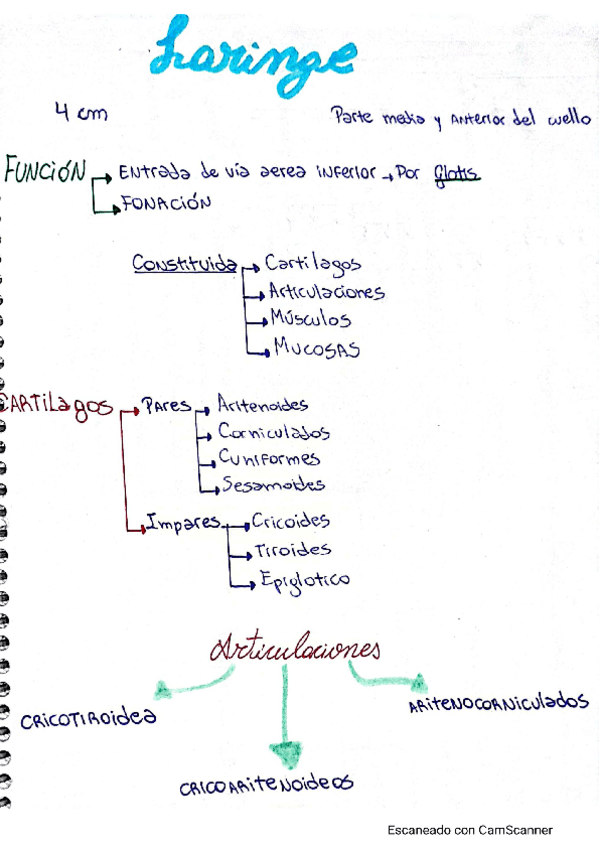 Laringe
4 cm
Parte media y Anterior del cuello
FUNCIÓN → Entrada de vía aerea inferior → Por glotis
→ FONACIÓN
Constituida → Cartilagos
→ Articulaciones
→ Músculos
→ Mucosas
CARTILagos → Pares → Aritenoides
→ Corniculados
→ Cuniformes
→ Sesamoides
→ Impares → Cricoides
→ Tiroides
→ Epiglotico
Articulaciones
CRICOTIROidea
ARitenoCORNiculados
CRICOARITENOideos
Escaneado con CamScanner